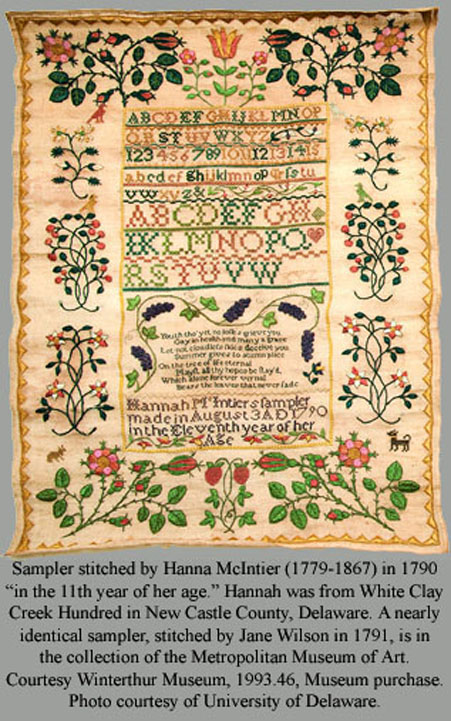 ABCDEFGHIJKLMNOP
QRSTUVWXYZ
123456789101112131415
abcdefghijklmnopqrstu
vwxyz&
ABCDEFGH
IKLMNOPQ
RSTUVW
Youth tho' yet no losses grieve you
Gay in health and many a grace
Let not cloudless skies deceive you
Summer gives to autumn place
On the tree of life eternal
Man all thy hopes be stay'd
Which alone forever vernal
Bears the leaves that never fade
Hannah Mc Intiers sampler
made in August 3 AD 1790
in the Eleventh year of her
Age
Sampler stitched by Hanna McIntier (1779-1867) in 1790
“in the 11th year of her age.” Hannah was from White Clay
Creek Hundred in New Castle County, Delaware. A nearly
identical sampler, stitched by Jane Wilson in 1791, is in
the collection of the Metropolitan Museum of Art.
Courtesy Winterthur Museum, 1993.46, Museum purchase.
Photo courtesy of University of Delaware.